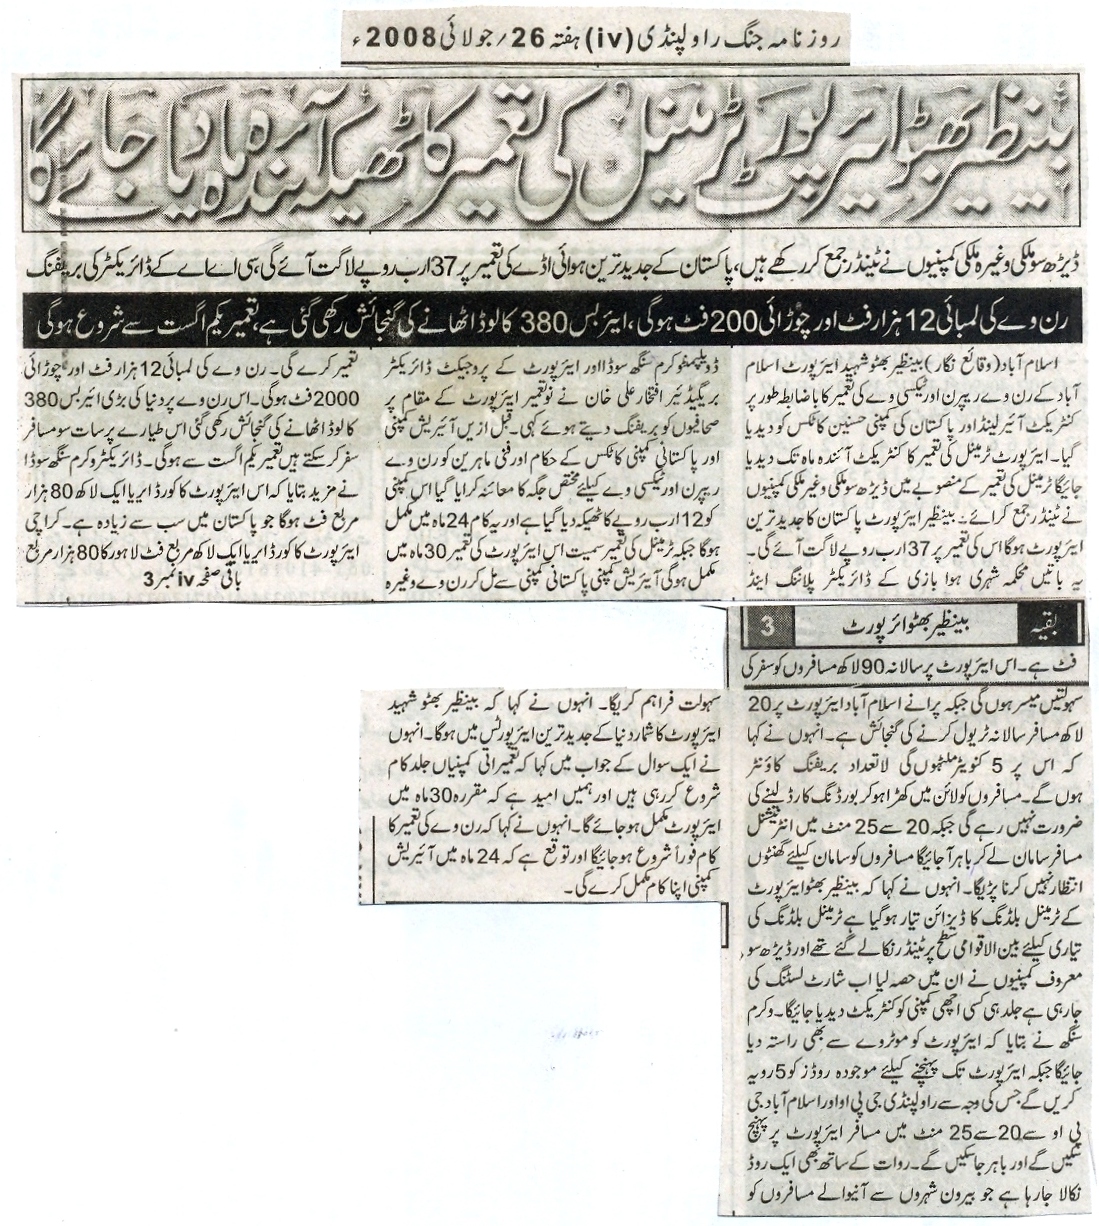 روزنامہ جنگ راولپنڈی (iv) ہفتہ 26؍ جولائی 2008ء
بینظیر بھٹو ایئرپورٹ ٹرمینل کی تعمیر کا ٹھیکہ آئندہ ماہ دیا جائے گا
ڈیڑھ سو ملکی و غیرہ ملکی کمپنیوں نے ٹینڈر جمع کر رکھے ہیں، پاکستان کے جدید ترین ہوائی اڈے کی تعمیر پر 37 ارب روپے لاگت آئے گی، سی اے اے کے ڈائریکٹر کی بریفنگ
رن وے کی لمبائی 12 ہزار فٹ اور چوڑائی 200 فٹ ہوگی، ایئر بس 380 کا لوڈ اٹھانے کی گنجائش رکھی گئی ہے، تعمیر یکم اگست سے شروع ہوگی
اسلام آباد (وقائع نگار) بینظیر بھٹو شہید ایئرپورٹ اسلام
آباد کے رن وے ریپرن اور ٹیکسی وے کی تعمیر کا باضابطہ طور پر
کنٹریکٹ آئرلینڈ اور پاکستان کی کمپنی حسنین کاٹکس کو دیدیا
گیا۔ ایئرپورٹ ٹرمینل کی تعمیر کا کنٹریکٹ آئندہ ماہ تک دیدیا
جائیگا ٹرمینل کی تعمیر کے منصوبے میں ڈیڑھ سو ملکی وغیر ملکی کمپنیوں
نے ٹینڈر جمع کرائے۔ بینظیر ایئرپورٹ پاکستان کا جدید ترین
ایئرپورٹ ہوگا اس کی تعمیر پر 37 ارب روپے لاگت آئے گی۔
یہ باتیں محکمہ شہری ہوا بازی کے ڈائریکٹر پلاننگ اینڈ
ڈویلپمنٹ وکرم سنگھ سوڈا اور ایئرپورٹ کے پروجیکٹ ڈائریکٹر
بریگیڈئیر افتخار علی خان نے نو تعمیر ایئرپورٹ کے مقام پر
صحافیوں کو بریفنگ دیتے ہوئے کہی۔ قبل ازیں آئیریش کمپنی
اور پاکستانی کمپنی کاٹکس کے حکام اور فنی ماہرین کو رن وے
ریپرن اور ٹیکسی وے کیلئے مختص جگہ کا معائنہ کرایا گیا اس کمپنی
کو 12 ارب روپے کا ٹھیکہ دیا گیا ہے اور یہ کام 24 ماہ میں مکمل
ہوگا جبکہ ٹرمینل کی تعمیر سمیت اس ایئرپورٹ کی تعمیر 30 ماہ میں
مکمل ہوگی آئیریش کمپنی پاکستانی کمپنی سے مل کر رن وے وغیرہ
تعمیر کرے گی۔ رن وے کی لمبائی 12 ہزار فٹ اور چوڑائی
2000 فٹ ہوگی۔ اس رن وے پر دنیا کی بڑی ائیر بس 380
کا لوڈ اٹھانے کی گنجائش رکھی گئی اس طیارے پر سات سو مسافر
سفر کرسکتے ہیں تعمیر یکم اگست سے ہوگی۔ ڈائریکٹر وکرم سنگھ سوڈا
نے مزید بتایا کہ اس ایئرپورٹ کا کورڈ ایریا ایک لاکھ 80 ہزار
مربع فٹ ہوگا جو پاکستان میں سب سے زیادہ ہے۔ کراچی
ایئرپورٹ کا کورڈ ایریا ایک لاکھ مربع فٹ لاہور کا 80 ہزار مربع
باقی صفحہ iv نمبر 3
بقیہ بینظیر بھٹو ائرپورٹ 3
فٹ ہے۔ اس ایئرپورٹ پر سالانہ 90 لاکھ مسافروں کو سفر کی
سہولتیں میسر ہوں گی جبکہ پرانے اسلام آباد ایئرپورٹ پر 20
لاکھ مسافر سالانہ ٹریول کرنے کی گنجائش ہے۔ انہوں نے کہا
کہ اس پر 5 کنویئر ملٹیپل ہوں گی لاتعداد بریفنگ کاؤنٹر
ہوں گے۔ مسافروں کو لائن میں کھڑا ہوکر بورڈنگ کارڈ لینے کی
ضرورت نہیں رہے گی جبکہ 20 سے 25 منٹ میں انٹرنیشنل
مسافر سامان لے کر باہر آجائیگا مسافروں کو سامان کیلئے گھنٹوں
انتظار نہیں کرنا پڑیگا۔ انہوں نے کہا کہ بینظیر بھٹو ایئرپورٹ
کے ٹرمینل بلڈنگ کا ڈیزائن تیار ہوگیا ہے ٹرمینل بلڈنگ کی
تیاری کیلئے بین الاقوامی سطح پر ٹینڈر نکالے گئے تھے اور ڈیڑھ سو
معروف کمپنیوں نے ان میں حصہ لیا اب شارٹ لسٹنگ کی
جارہی ہے جلد ہی کسی اچھی کمپنی کو کنٹریکٹ دیدیا جائیگا۔ وکرم
سنگھ نے بتایا کہ ایئرپورٹ کو موٹروے سے بھی راستہ دیا
جائیگا جبکہ ایئرپورٹ تک پہنچنے کیلئے موجودہ روڈز کو 5 رویہ
کریں گے جس کی وجہ سے راولپنڈی جی پی او اور اسلام آباد جی
پی او سے 20 سے 25 منٹ میں مسافر ایئرپورٹ پر پہنچ
سکیں گے اور باہر جاسکیں گے۔ روات کے ساتھ بھی ایک روڈ
نکالا جارہا ہے جو بیرون شہروں سے آنیوالے مسافروں کو
سہولت فراہم کریگا۔ انہوں نے کہا کہ بینظیر بھٹو شہید
ایئرپورٹ کا شمار دنیا کے جدید ترین ایئرپورٹس میں ہوگا۔ انہوں
نے ایک سوال کے جواب میں کہا کہ تعمیراتی کمپنیاں جلد کام
شروع کررہی ہیں اور ہمیں امید ہے کہ مقررہ 30 ماہ میں
ایئرپورٹ مکمل ہوجائے گا۔ انہوں نے کہا کہ رن وے کی تعمیر کا
کام فوراً شروع ہوجائیگا اور توقع ہے کہ 24 ماہ میں آئیریش
کمپنی اپنا کام مکمل کرے گی۔